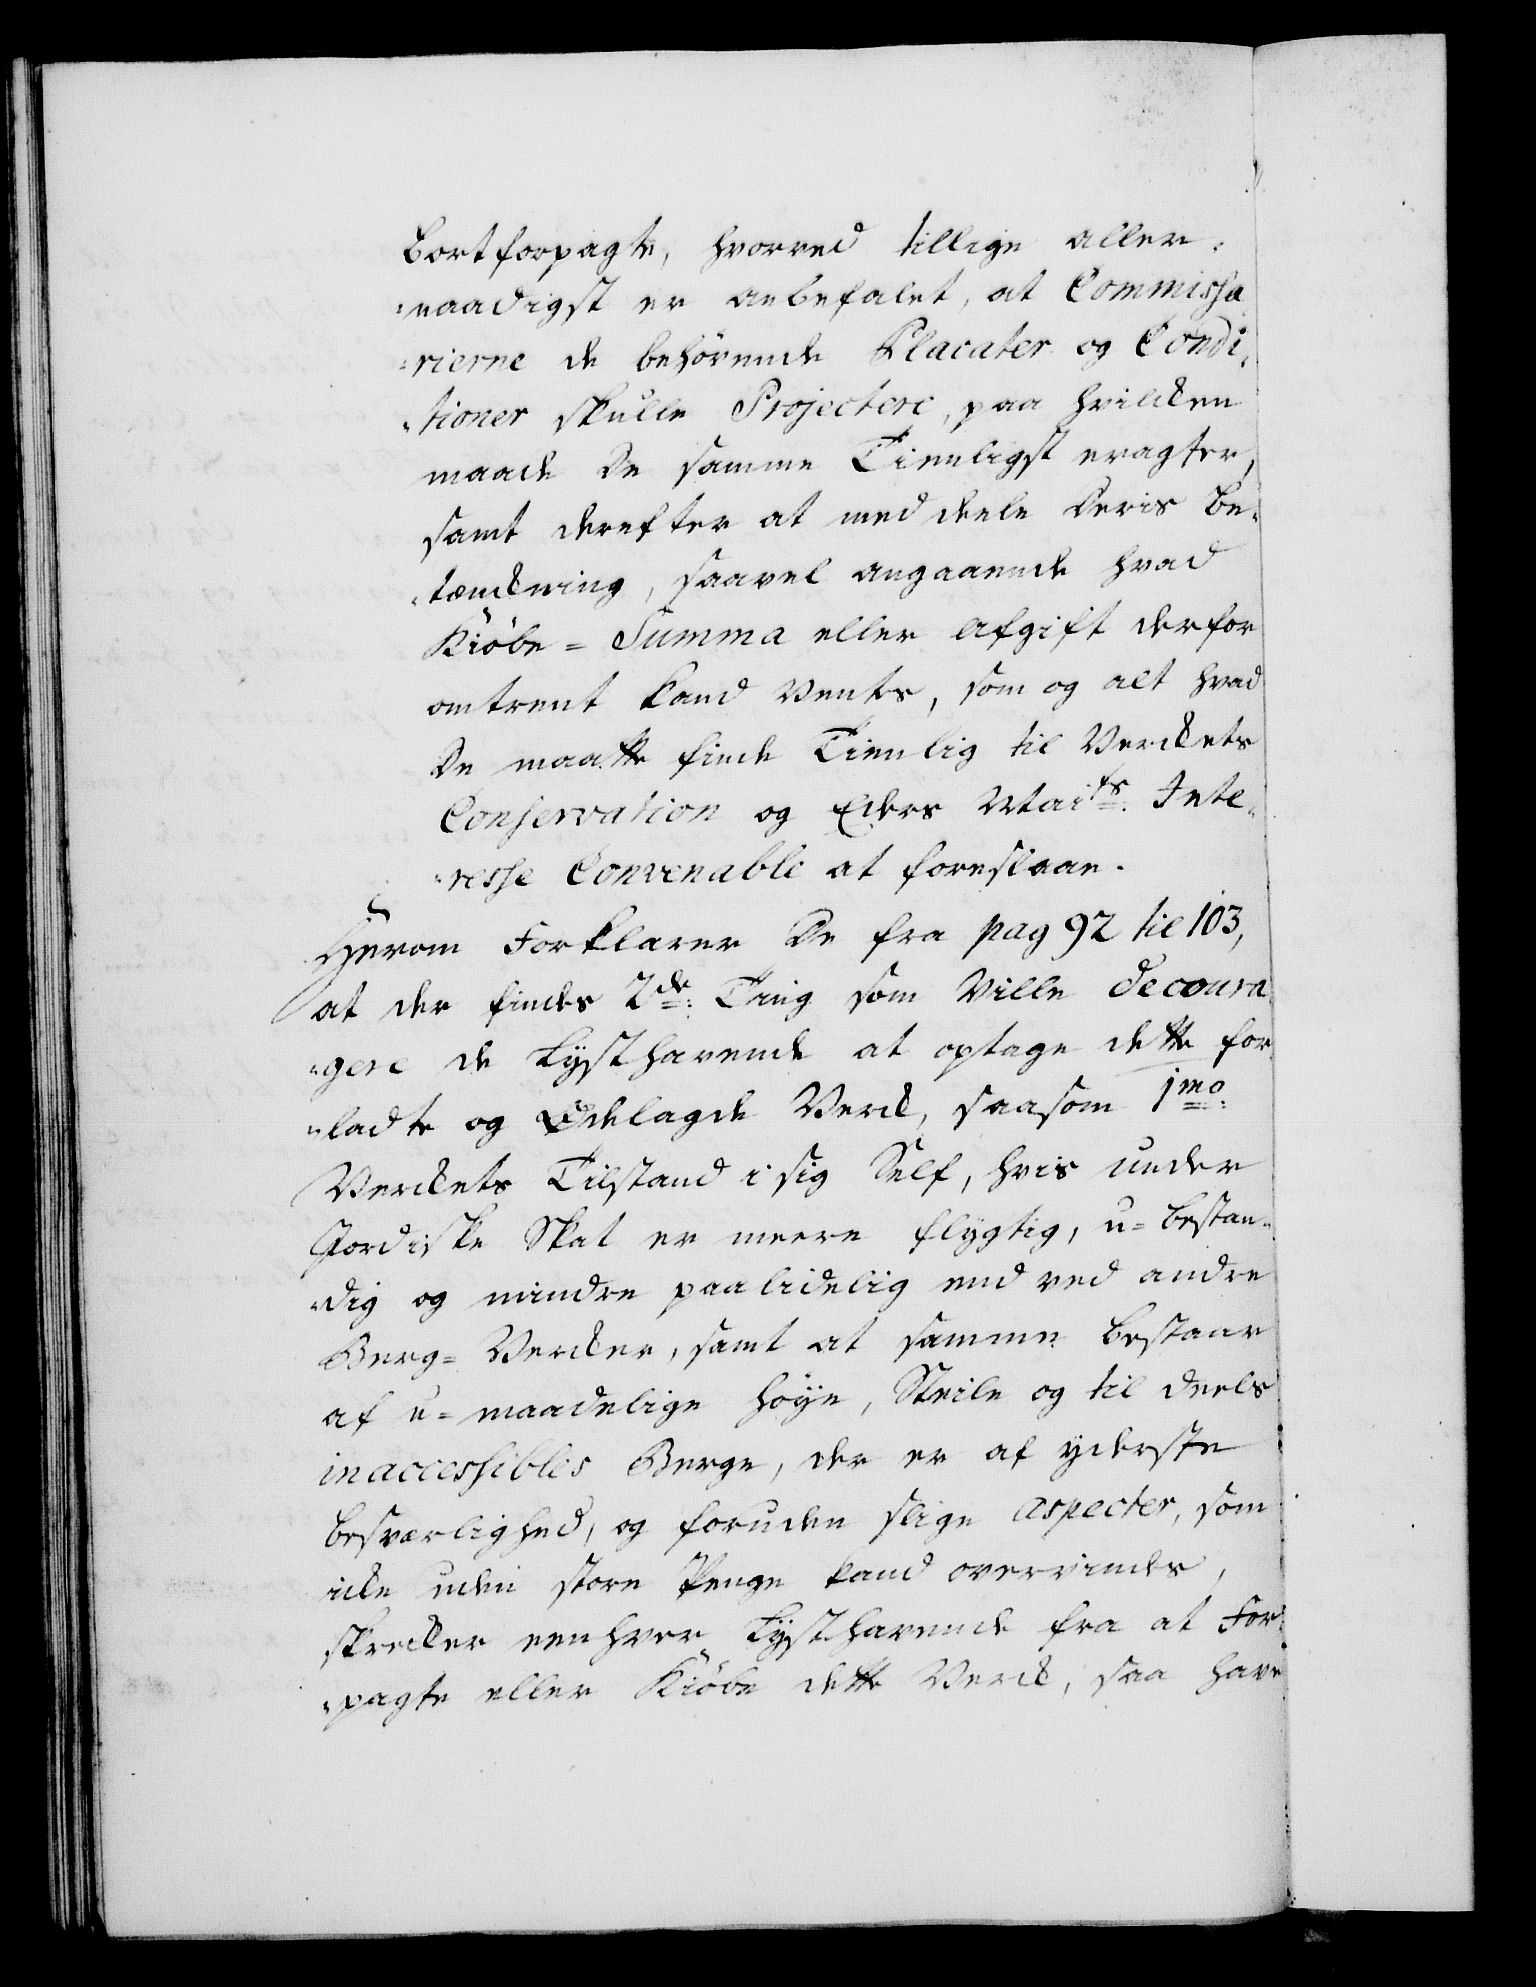 bortforpagte, hvorved tillige aller-
naadigst er anbefalet, at Commissa
-rierne de behörende Placater og Condi-
-tioner skulle Projectere, paa hvilcken
maade De samme Tienligst eragter,
samt derefter at meddeele Deris Be-
-tænckning, saavel angaaende hvad
Kiöbe- Summa eller Afgift derfor
omtrent kand ventes, som og alt hvad
De maatte finde Tienlig til Verckets
Conservation og Eders Maits. Inte-
-resse Convenable at foreslaae.
Herom Forklarer De fra pag 92 til 103,
at der findes 2de: Ting som Ville decoura
-gere de Lysthavende at optage dette for
-ladte og Ödelagde Verck, saasom 1mo:
Verckets Tilstand i sig Self, hvis under
Jordiske Skat er meere flygtig, u-bestan-
-dig og mindre paalidelig end ved andre
Berg- Vercker, samt at samme bestaar
af u-maadelige höye, Steile og til deels
inaccessibles Berge, der er af yderste
besværlighed, og foruden slige Aspecter, som
icke uden store Penge kand overvindes,
skrecker eenhver Lysthavende fra at For-
-pagte eller Kiöbe dette Verck, saa have